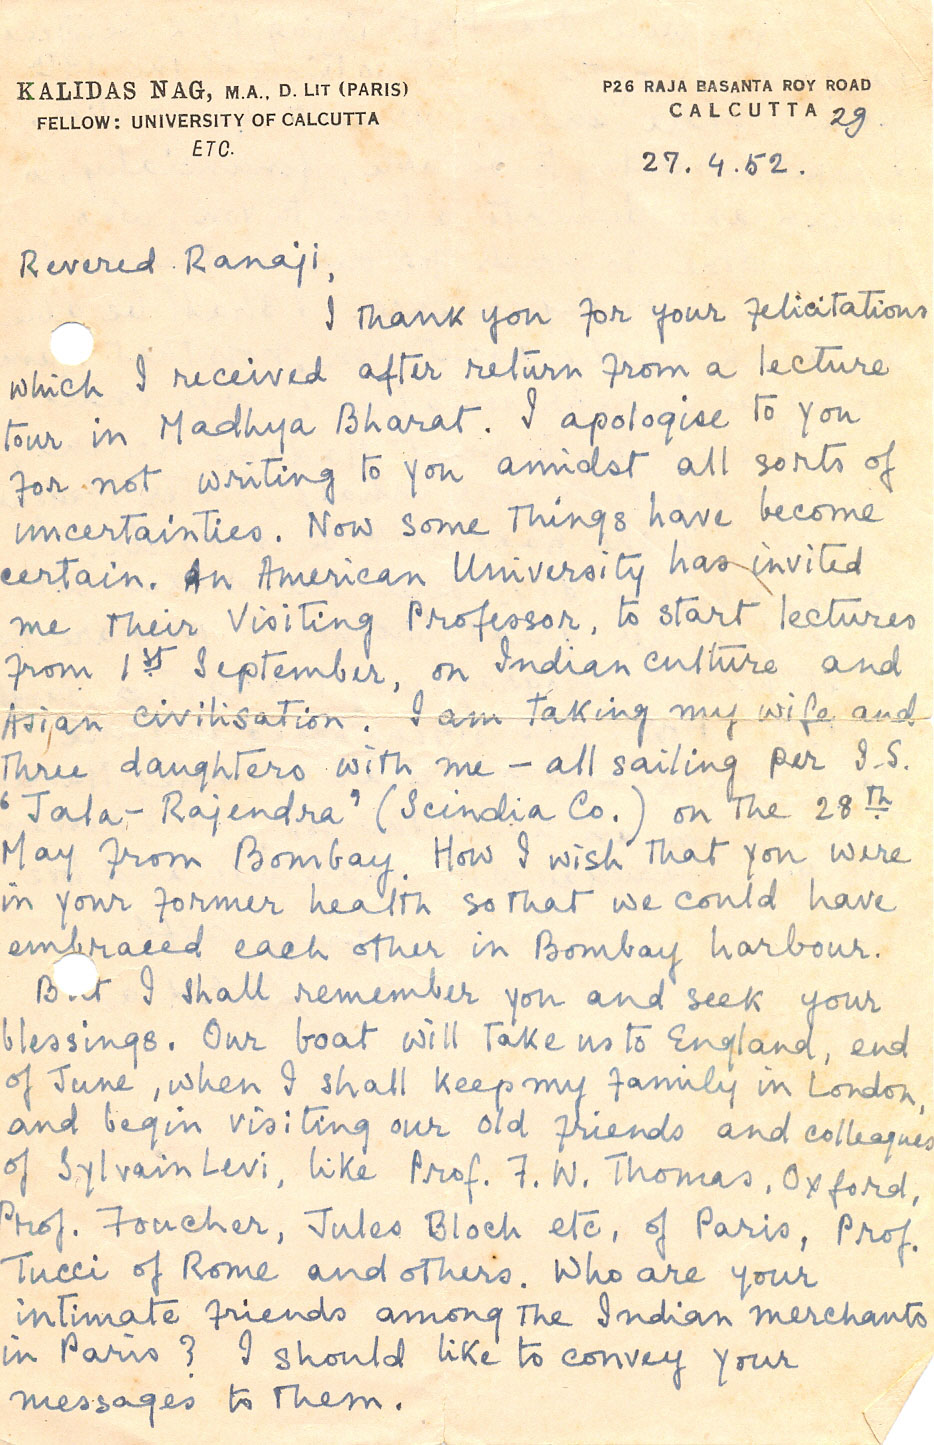 KALIDAS NAG, M.A., D. LIT (PARIS)
FELLOW: UNIVERSITY OF CALCUTTA
ETC.
P26 RAJA BASANTA ROY ROAD
CALCUTTA 29
27.4.52.
Revered Ranaji,
I thank you for your felicitations
which I received after return from a lecture
tour in Madhya Bharat. I apologise to you
for not writing to you amidst all sorts of
uncertainties. Now some things have become
certain. An American University has invited
me their Visiting Professor, to start lectures
from 1st September, on Indian culture and
Asian civilisation. I am taking my wife and
three daughters with me – all sailing per I.S.
"Jala-Rajendra" (Scindia Co.) on the 28th
May from Bombay. How I wish that you were
in your former health so that we could have
embraced each other in Bombay harbour.
But I shall remember you and seek your
blessings. Our boat will take us to England, end
of June, when I shall keep my family in London,
and begin visiting our old friends and colleagues
of Sylvain Levi, like Prof. F. W. Thomas, Oxford,
Prof. Foucher, Jules Bloch etc, of Paris, Prof.
Tucci of Rome and others. Who are your
intimate friends among the Indian merchants
in Paris? I should like to convey your
messages to them.